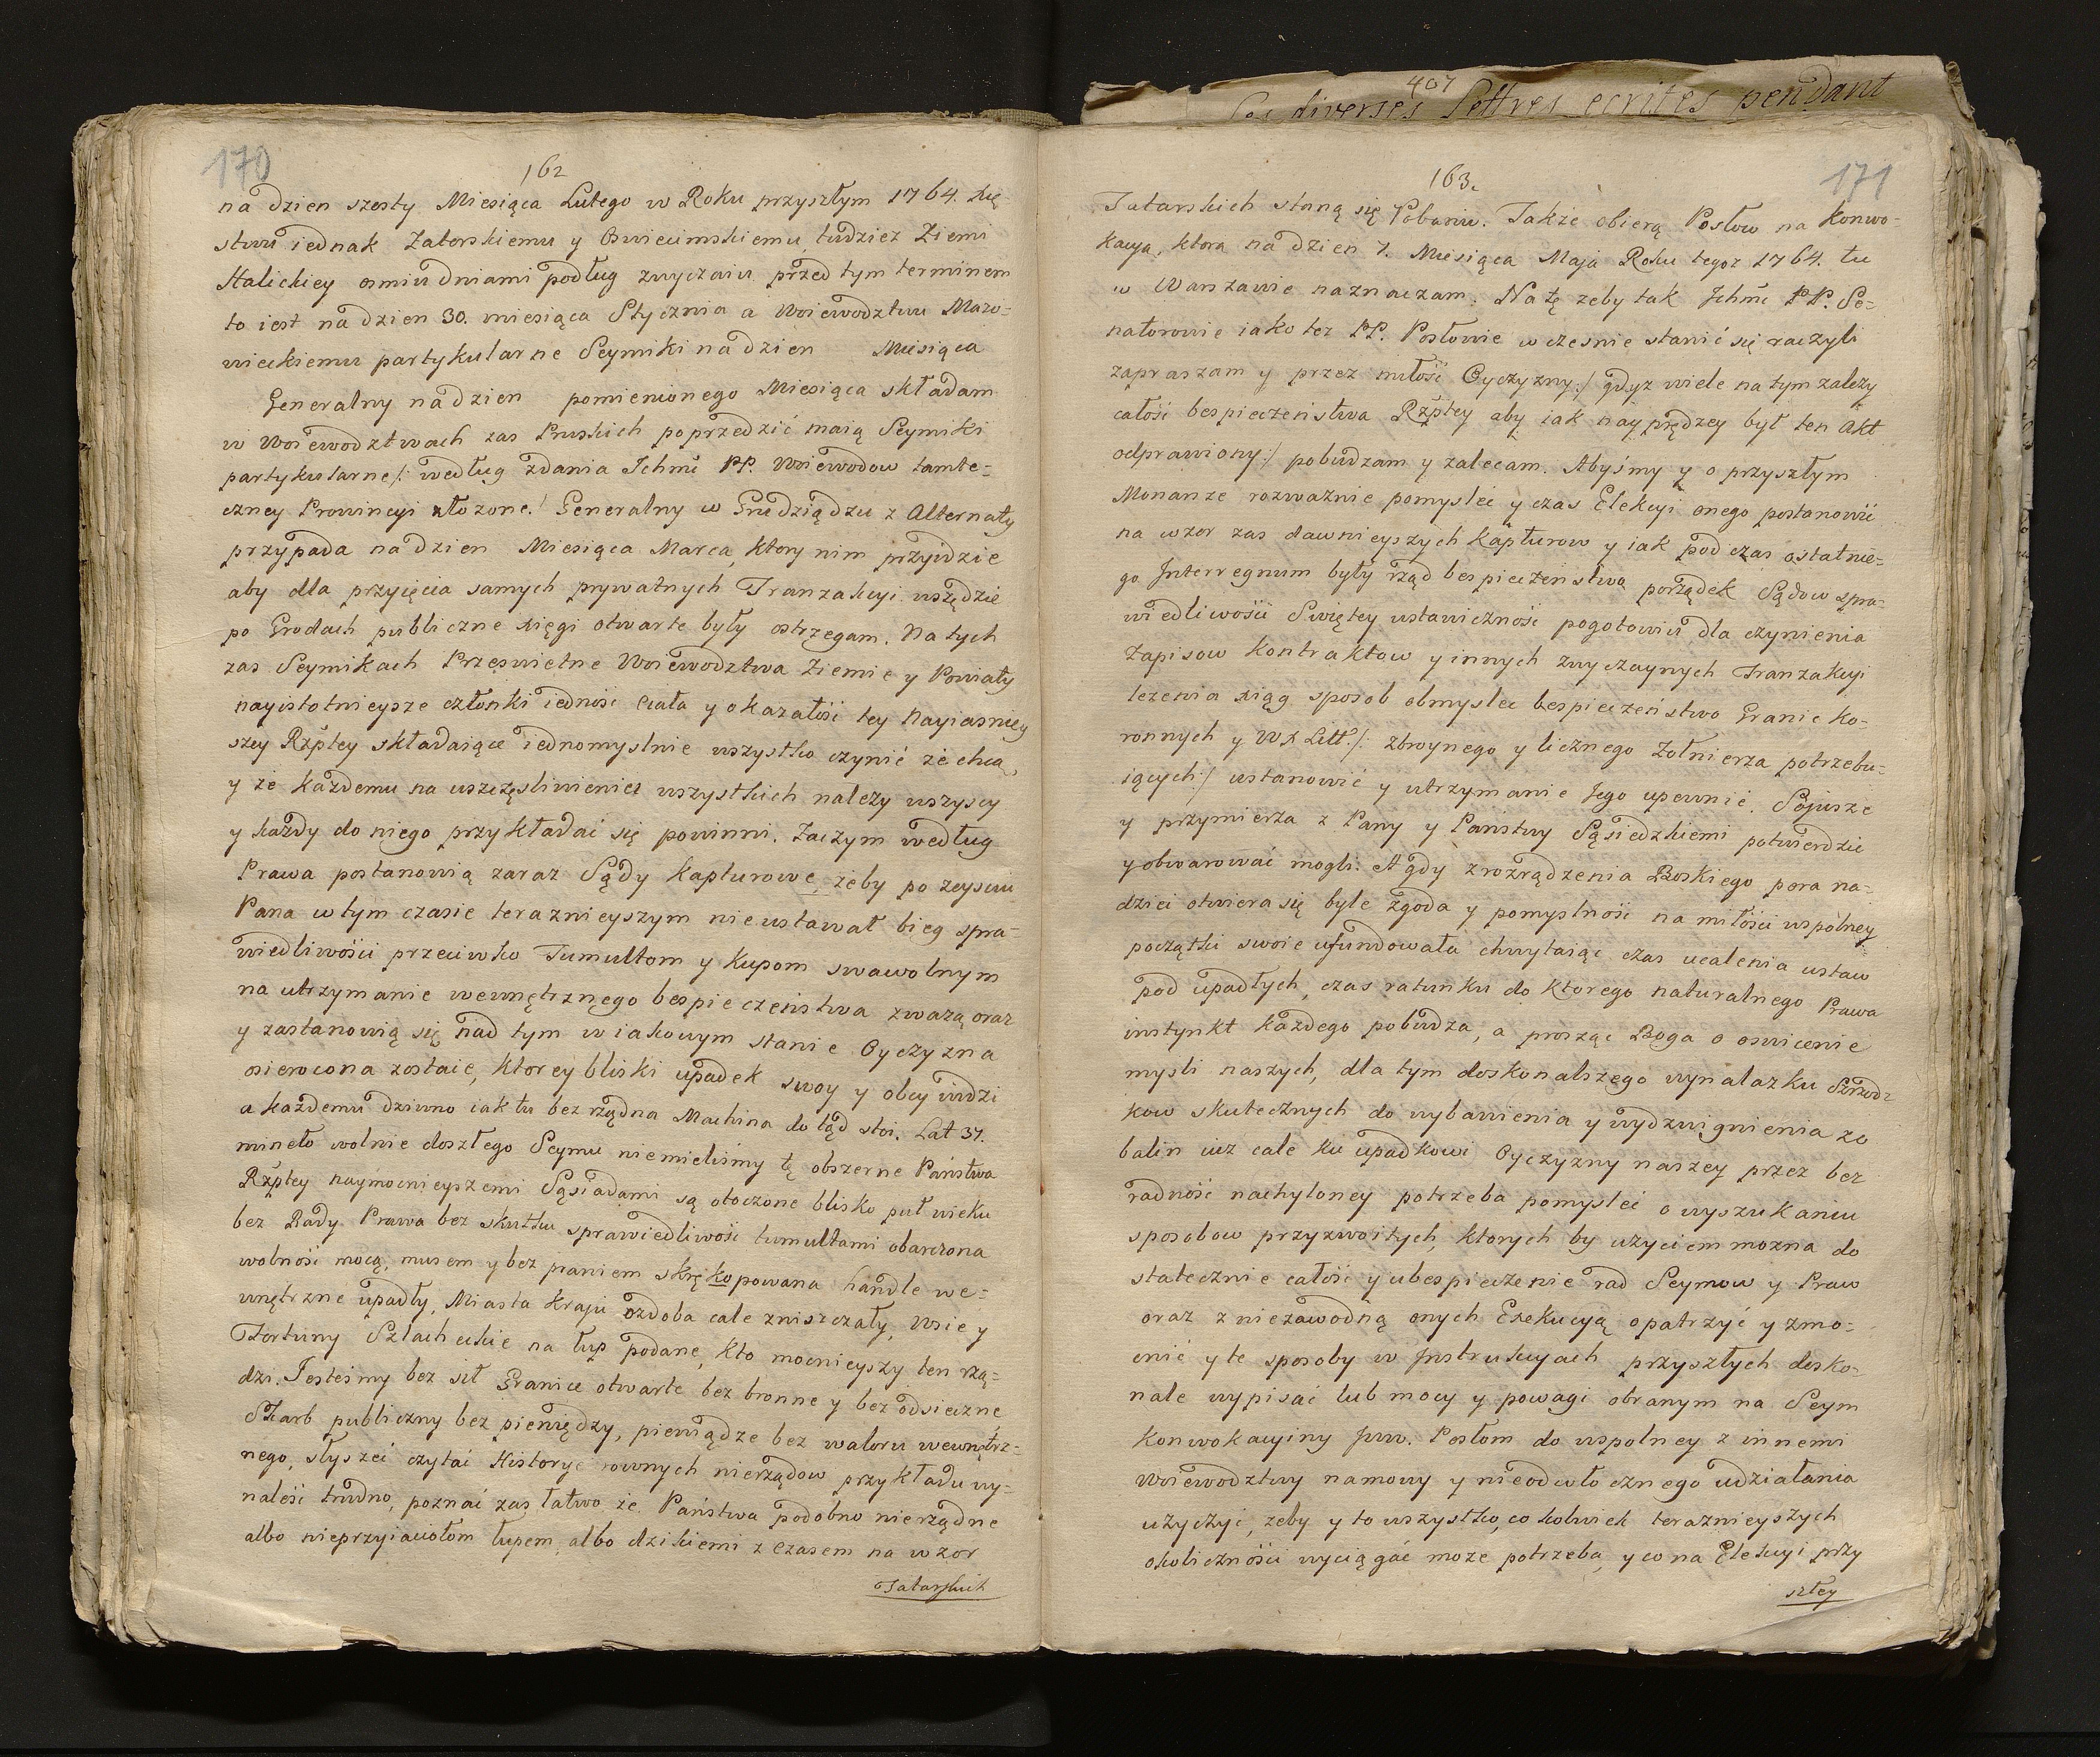 170
162
na dzien szesty Miesiąca Lutego w Roku przyszłym 1764. Xię-
stwu iednak Zatorskiemu y Oswiecimskiemu, tudziez Ziemi
Halickiey osmiu dniami podług zwyczaiu przed tym terminem
to iest na dzien 30. miesiąca Stycznia a Woiewodztwu Mazo-
wieckiemu partykularne Seymiki na dzien Miesiąca
Generalny na dzien pomienionego Miesiąca składam
w Woiewodztwach zas Pruskich poprzedzić maią Seymiki
partykularne /: według zdania Ichmć PP. Woiewodow tamte-
czney Prowincyi złozone./ Generalny w Grudziądzu z Alternaty
przypada na dzien Miesiąca Marca, ktory nim przyidzie
aby dla przyięcia samych prywatnych Tranzakcyi wszędzie
po Grodach publiczne xięgi otwarte były ostrzegam. Na tych
zas Seymikach Przeswietne Woiewodztwa Ziemie y Powiaty
nayistotnieysze członki iednosć ciała y okazałość tey Nayiasniey
szey Rzptey składaiące iednomyslnie wszystko czynić ze chcą,
y ze kazdemu na uszczęsliwieniu wszystkich nalezy wszyscy
y kazdy do niego przykładać się powinni. Zaczym według
Prawa postanowią zaraz Sądy Kapturowe, zeby po zeysciu
Pana w tym czasie teraznieyszym nie ustawał bieg spra-
wiedliwości przeciwko Tumultom y kupom swawolnym
na utrzymanie wewnętrznego bespieczeństwa zwazą oraz
y zastanowią się nad tym w iakowym stanie Oyczyzna
osierocona zostaie, ktorey bliski upadek swoy y obcy widzi
a kazdemu dziwno iak tu bez rządna Machina do tąd stoi. Lat 37.
mineło wolnie doszłego Seymu niemieliśmy tę obszerne Państwa
Rzptey naymocnieyszemi Sąsiadami są otoczone blisko puł wieku
bez Rady Prawa bez skutku sprawiedliwość tumultami obarczona
wolność mocą, musem y bez prawiem skrękopowana handle we-
wnętrzne upadły, Miasta Kraju ozdoba cale zniszczały, Wsie y
Fortuny Szlacheckie na łup podane, kto mocnieyszy ten rzą-
dzi. Iesteśmy bez sił Granice otwarte bez bronne y bez odsieczne,
Skarb publiczny bez pieniędzy, pieniądze bez waloru wewnętrz-
nego, słyszeć czytać Historye rownych nierządow przykładu wy-
naleść trudno, poznać zas łatwo ze Państwa podobno nierządne
albo nieprzyiaciołom łupem, albo dzikiemi z czasem na wzor
Tatarskich
407
Les diverses Lettres ecrites pendant
171
163.
Tatarskich staną się Pobaniu. Także obierą Posłow na Konwo-
kacyą, ktora na dzien 7. Miesiąca Maja Roku tegoz 1764. tu
w Warszawie naznaczam. Na tę zeby tak Ichmć PP. Se-
natorowie iako tez PP. Posłowie wczesnie stawić się raczyli
zapraszam y przez miłość Oyczyzny :/ gdyz wiele na tym zalezy
całość bespieczeństwa Rzptey aby iak nayprędzey był ten Akt
odprawiony :/ pobudzam y zalecam. Abyśmy y o przyszłym
Monarsze rozwaznie pomysleć y czas Elekcyi onego postanowić
na wzor zas dawnieyszych kapturow y iak podczas ostatnie-
go Interregnum były rząd bespieczeństwa porządek Sądow spra-
wiedliwości Swiętey ustawiczność pogotowiu dla czynienia
Zapisow kontraktow y innych zwyczaynych Tranzakcyi
lezenia xiąg sposob obmyslec bespieczeństwo Granic Ko-
ronnych y WX Litt. /: zbroynego y licznego Zołnierza potrzebu-
iących :/ ustanowić y utrzymanie Jego upewnić. Sojusze
y przymierza z Pany y Państwy Sąsiedzkiemi potwierdzić
y obwarować mogli: A gdy z rozrządzenia Boskiego pora na-
dziei otwiera się byle zgoda y pomyslność na miłości wspólney
początki swoie ufundowała chwytaiąc czas ucalenia ustaw
pod upadłych, czas ratunku do ktorego naturalnego Prawa
instynkt kazdego pobudza, a prosząc Boga o oswicenie
mysli naszych, dla tym doskonalszego wynalazku Srzod-
kow skutecznych do wybawienia y wydzwignienia zo
balin iuz cale ku upadkowi Oyczyzny naszey przez bez
radność nachyloney potrzeba pomysleć o wyszukaniu
sposobow przyzwoitych, ktorych by uzyciem mozna do
statecznie całość y ubespieczenie rad Seymow y Praw
oraz z niezawodną onych Exekucyą opatrzyć y zmo-
cnić y te sposoby w Instrukcyach przyszłych dosko-
nale wypisać lub mocy y powagi obranym na Seym
Konwokacyiny Jww. Posłom do wspolney z innemi
Woiewodztwy namowy y nieodwłocznego udziałania
uzyczyć, zeby y to wszystko, cokolwiek teraznieyszych
okoliczności wyciągać moze potrzeba, y co na Elekcyi przy
szłey